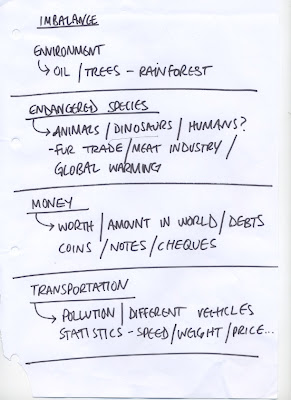 IMBALANCE
ENVIRONMENT
↳ OIL / TREES - RAINFOREST
ENDANGERED SPECIES
↳ ANIMALS / DINOSAURS / HUMANS?
- FUR TRADE / MEAT INDUSTRY /
GLOBAL WARMING
MONEY
↳ WORTH / AMOUNT IN WORLD / DEBTS
COINS / NOTES / CHEQUES
TRANSPORTATION
↳ POLLUTION / DIFFERENT VEHICLES
STATISTICS - SPEED / WEIGHT / PRICE...